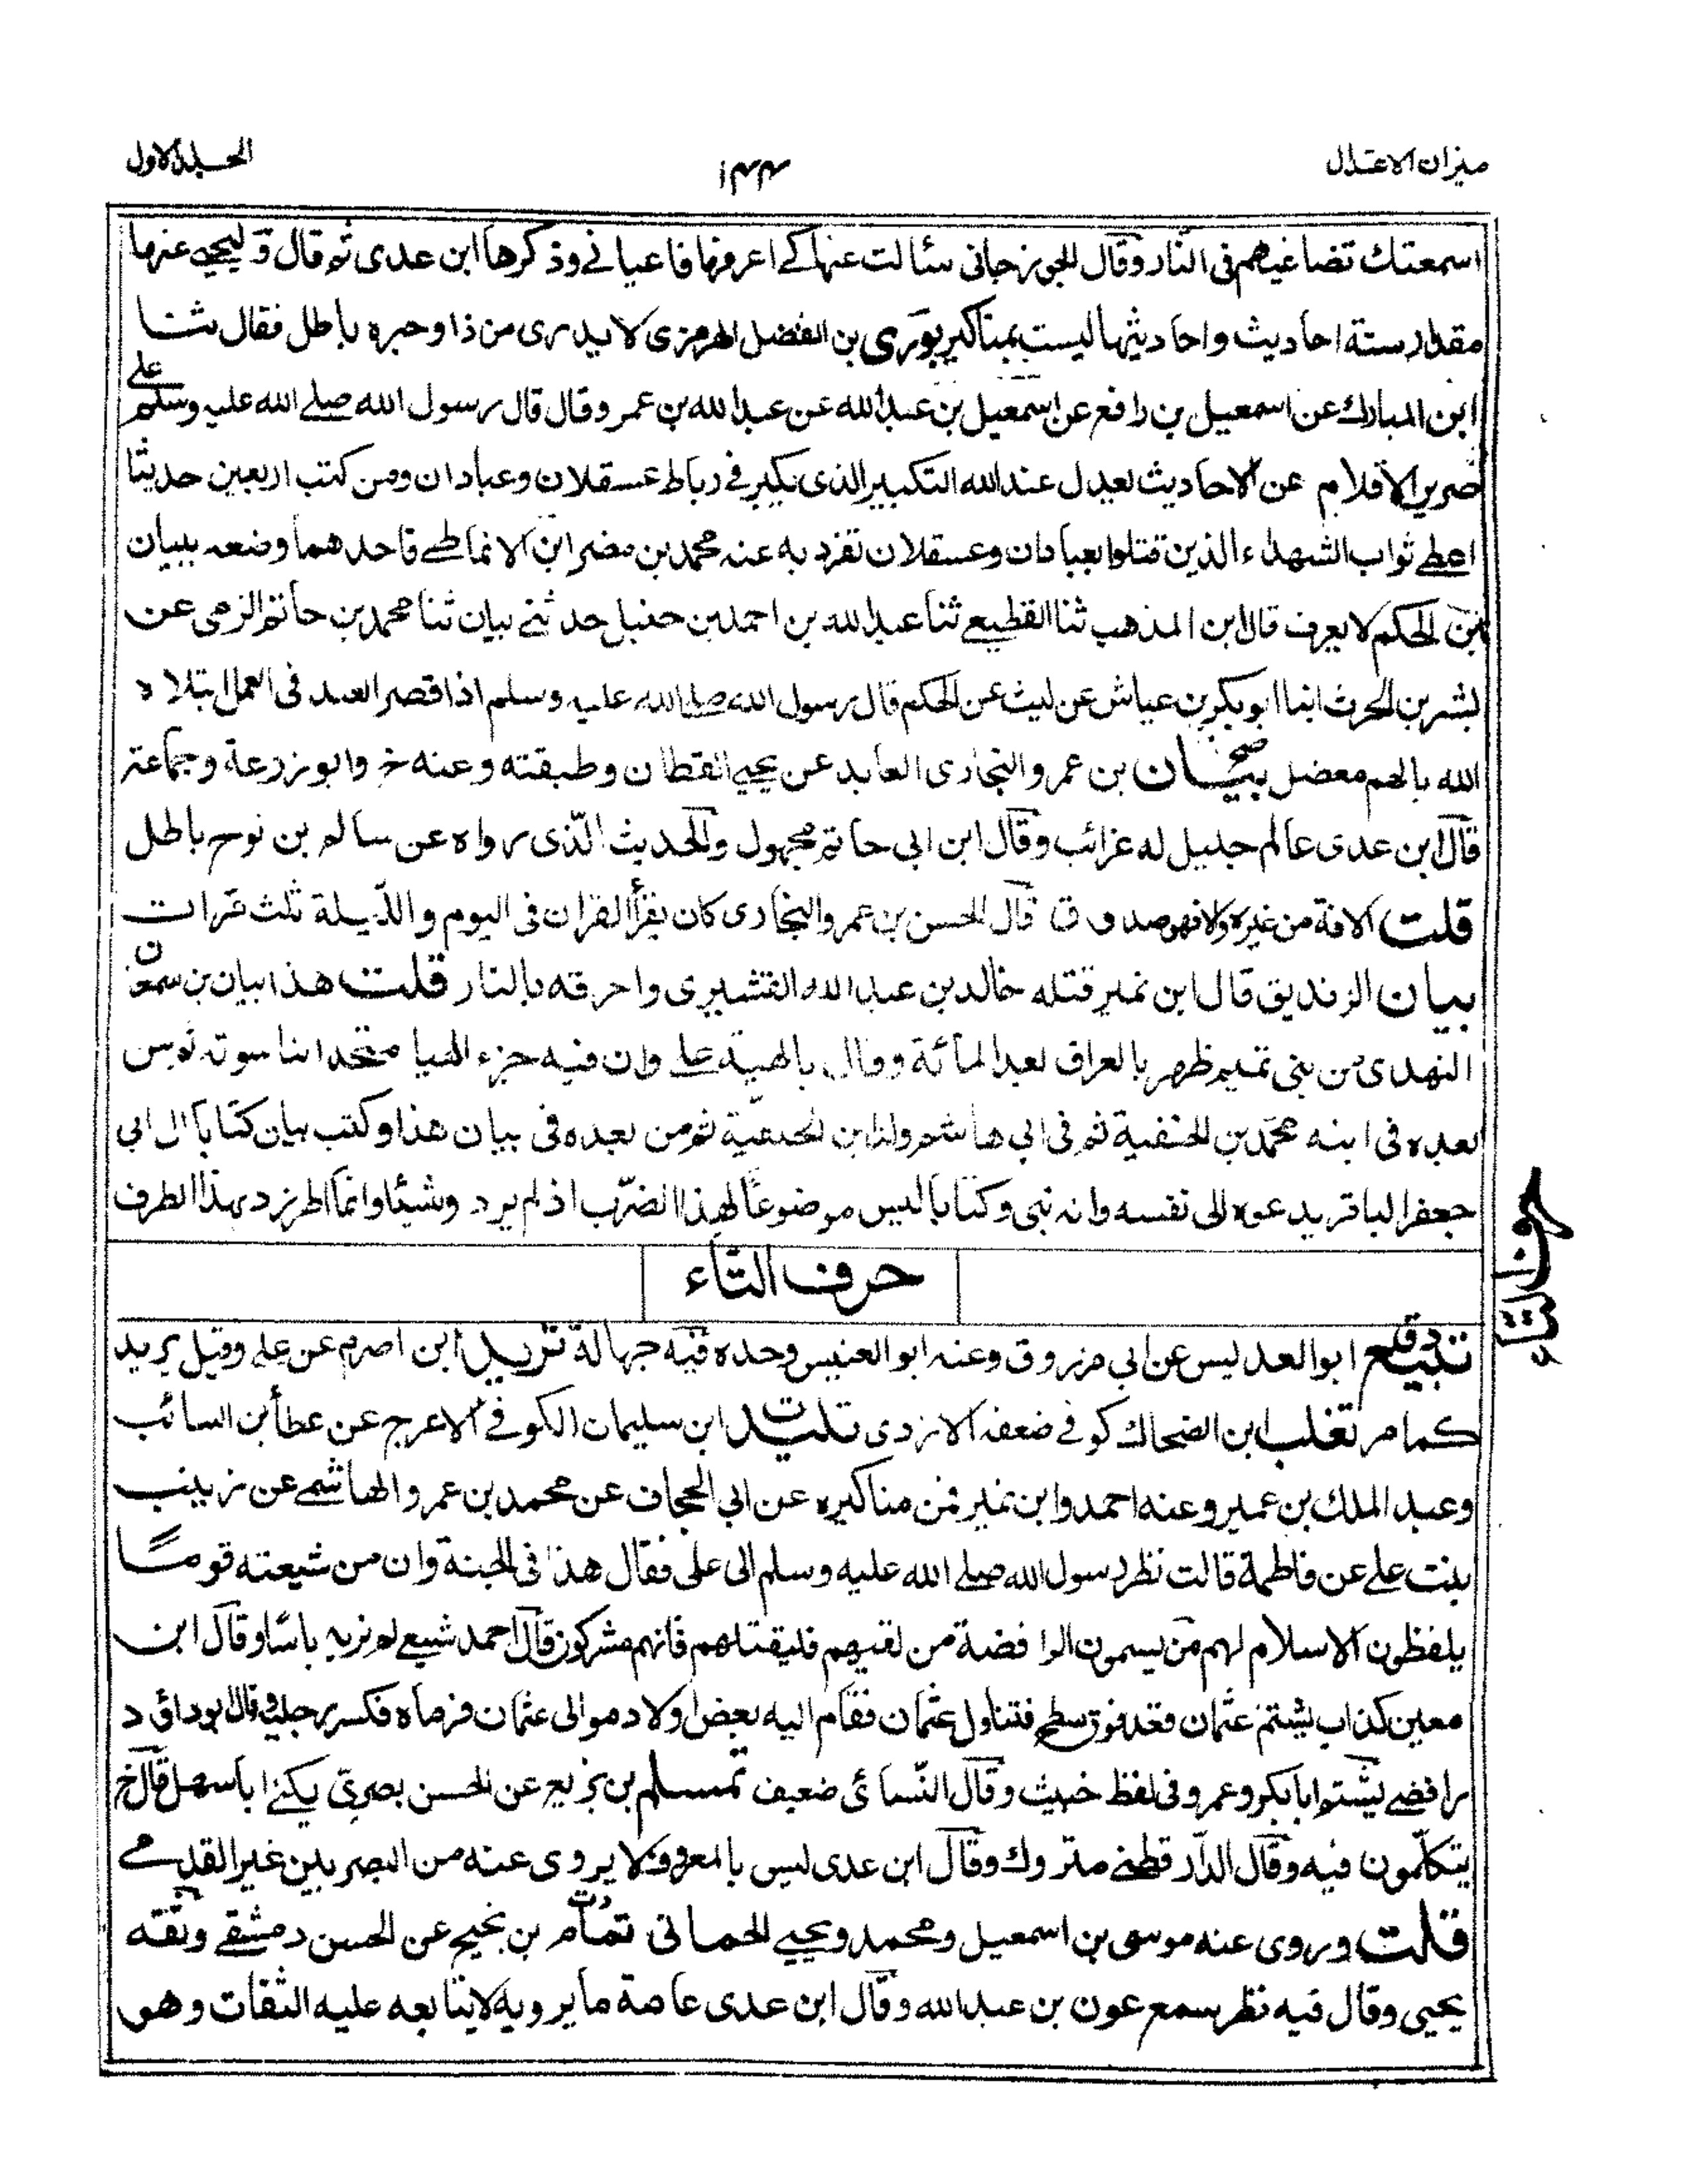 ميزان الاعتدال
١٤٤
الجلد الاول
اسمعتك تضاغيهم فى النار وقال الجوزجانى سئالت عنها كے اعرفها فاعيانے وذكرها ابن عدى ثم قال وليحيے عنها
مقدار ستة احاديث واحاديثها ليست بمناكير بورى بن الفضل الهرمزى لا يدرى من ذا وخبره باطل فقال ثنا
ابن المبارك عن اسمعيل بن رافع عن اسمعيل بن عبد الله عن عبد الله بن عمر وقال قال رسول الله صلے الله عليه وسلم على
صرير الاقلام عن الاحاديث يعدل عند الله التكبير الذى يكبر فے رباط عسقلان وعبادان ومن كتب اربعين حديثا
اعطے ثواب الشهداء الذين قتلوا بعبادان وعسقلان تفرد به عنه محمد بن مضر ابن الانماطے فاحدهما وضعه بيان
بن الحكم لا يعرف قال ابن المذهب ثنا القطيعے ثنا عبد الله بن احمد بن حنبل حدثنے بيان ثنا محمد بن حاتم الزمى عن
بشر بن الحرث انباا ابو بكر بن عياش عن ليث عن الحكم قال رسول الله صلے الله عليه وسلم اذا قصر العبد فى العمل ابتلاه
الله بالهم معضل بيان صح بن عمرو البخارى العابد عن يحيے القطان وطبقته وعنه خ وابو زرعة وجماعة
قال ابن عدى عالم جليل له غرائب وقال ابن ابى حاتم مجهول والحديث الذى رواه عن سالم بن نوح باطل
قلت الافة من غيره ولا فهو صدوق ق قال الحسن بن عمرو البخارى كان يقرأ القران فى اليوم والليلة ثلث مرات
بيان الزنديق قال ابن نمير قتله خالد بن عبد الله القشيرى واحرقه بالنار قلت هذا بيان بن سمعان
النهدى من بنى تميم ظهر بالعراق بعد المائة وقال بالهية على وان فيه جزء الهيا متحدا بناسوته ثم من
بعده فى ابنه محمد بن الحنفية ثم فى ابى هاشم ولد ابن الحنفية ثم من بعده فى بيان هذا وكتب بيان كتابا الى ابى
جعفر الباقر يدعوه الى نفسه وانه نبى وكتابا ليس موضوعا لهذا الضرب اذ لم يرد وشيئا وانما اطرزد بهذا الطرف
حرف التاء
حرف التاء
تبيع د ق ابو العدليس عن ابى مرزوق وعنه ابو العنبس وحده فيه جهالة تزيد ابن اصرم عن على وقيل يريد
كما مر تغلب ابن الضحاك كوفے ضعفه الازدى تليد ت ابن سليمان الكوفے الاعرج عن عطأ بن السائب
وعبد الملك بن عمير وعنه احمد وابن نمير فمن مناكيره عن ابى الحجاف عن محمد بن عمرو الهاشمے عن زينب
بنت على عن فاطمة قالت نظر رسول الله صلے الله عليه وسلم الى على فقال هذا فى الجنة وان من شيعته قوما
يلفظون الاسلام لهم من يسمون الرافضة من لقيهم فليقتلهم فانهم مشركون قال احمد شيعے لم نر به باسا وقال ابن
معين كذاب يشتم عثمان قعد فوق سطح فتناول عثمان فقام اليه بعض اولاد موالى عثمان فرماه فكسر رجليه وقال ابو داؤد
رافضے يشتم ابا بكر وعمر وفى لفظ خبيث وقال النسائى ضعيف تمسلم بن بزيع عن الحسن بصرى يكنے ابا سهل قال خ
يتكلمون فيه وقال الدارقطنے متروك وقال ابن عدى ليس بالمعروف لا يروى عنه من البصريين غير القدمے
قلت وروى عنه موسى بن اسمعيل ومحمد ويحيے الحمانى تمام د ت بن نجيح عن الحسن دمشقے وثقه
يحيى وقال فيه نظر سمع عون بن عبد الله وقال ابن عدى عامة ما يرويه لا يتابعه عليه الثقات وهو